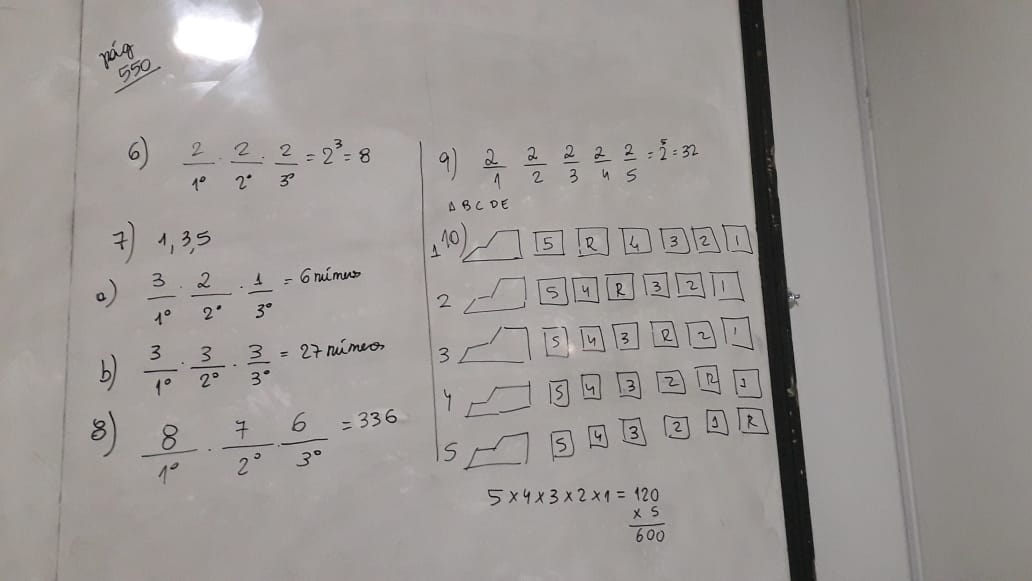 pág
550
6) 2/1º . 2/2º . 2/3º = 2³ = 8
7) 1, 3, 5
a) 3/1º . 2/2º . 1/3º = 6 números
b) 3/1º . 3/2º . 3/3º = 27 números
8) 8/1º . 7/2º . 6/3º = 336
9) 2/1 2/2 2/3 2/4 2/5 = 2⁵ = 32
A B C D E
10)
1 5 R 4 3 2 1
2 5 4 R 3 2 1
3 5 4 3 R 2 1
4 5 4 3 2 R 1
5 5 4 3 2 1 R
5 x 4 x 3 x 2 x 1 = 120
x 5
600